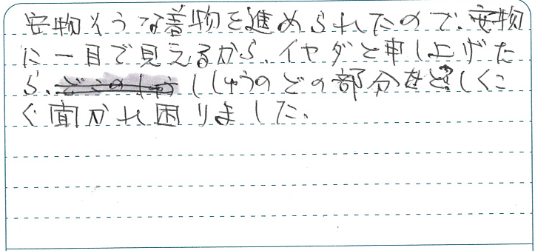 安物そうな着物を進められたので、安物
に一目で見えるから、イヤダと申し上げた
ら、ししゅうのどの部分をどしくこ
く面かれ困りました、